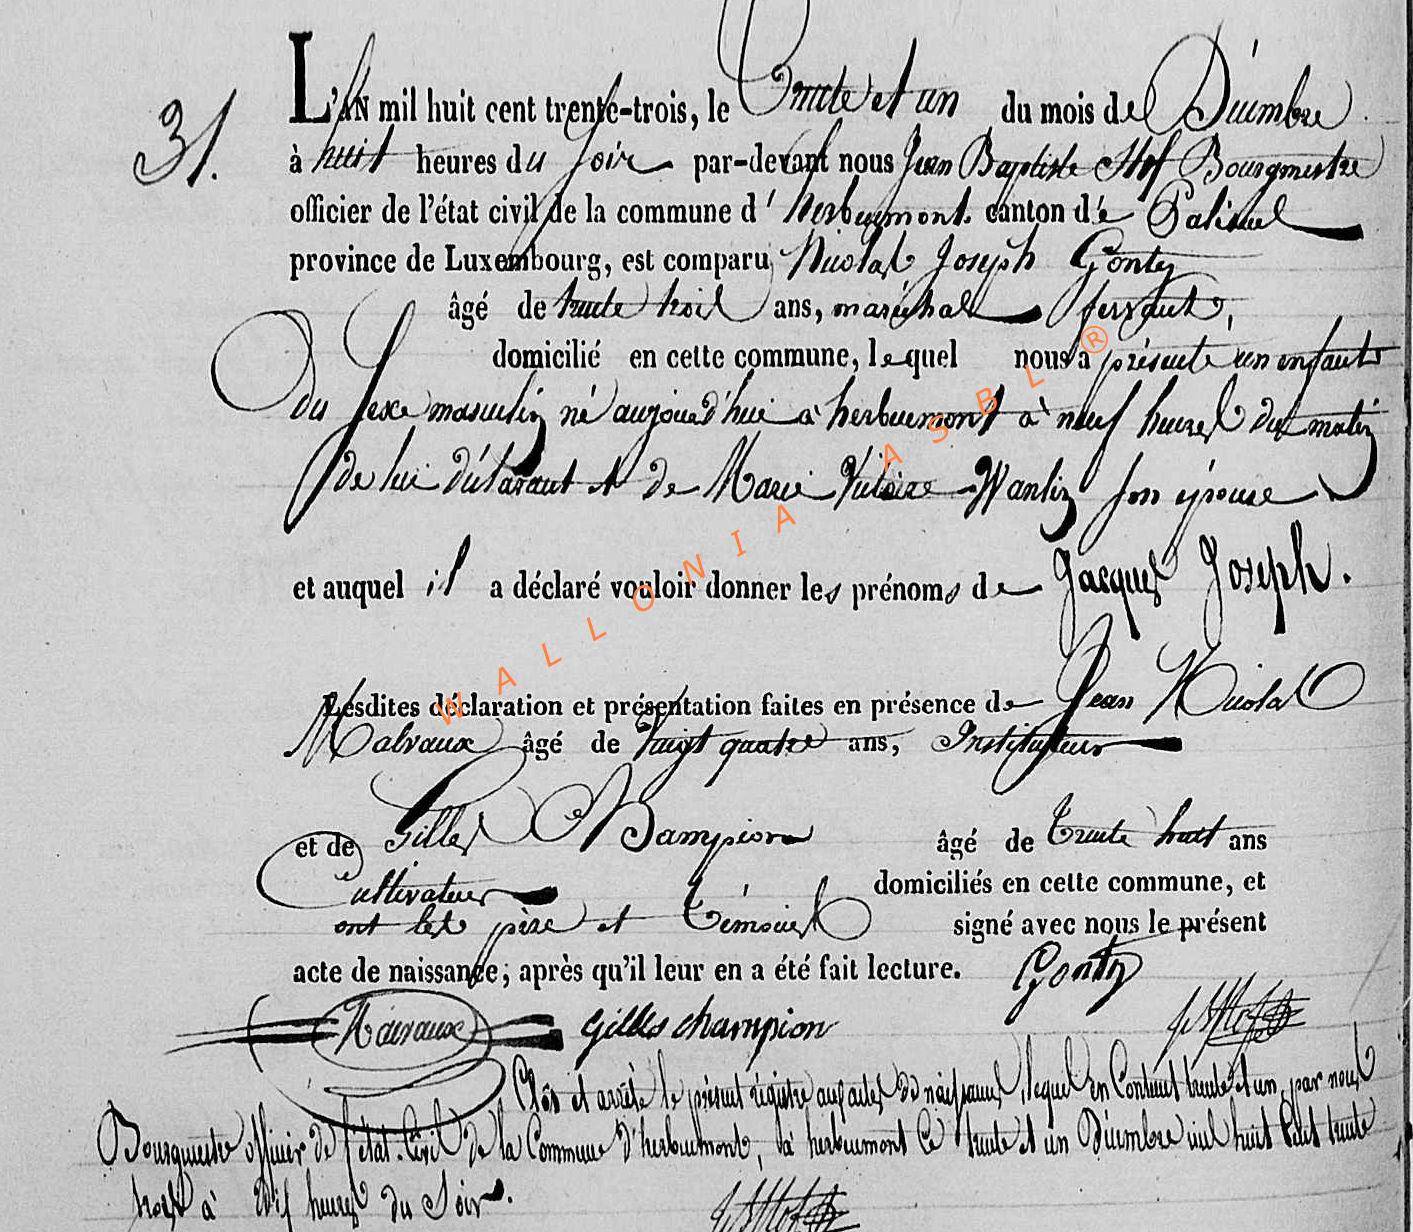 31.
L'AN mil huit cent trente-trois, le Trente et un du mois de Décembre
à huit heures du soir par-devant nous Jean Baptiste Bourgmestre
officier de l'état civil de la commune d'herbeumont. canton de Paliseul
province de Luxembourg, est comparu Nicolas Joseph Gonty
âgé de trente trois ans, maréchal ferrant,
domicilié en cette commune, lequel nous a présenté un enfant
du sexe masculin né aujourd'hui à herbeumont à neuf heures du matin
de lui déclarant et de Marie Victoire Wanlin son épouse
et auquel il a déclaré vouloir donner les prénoms de Jacques Joseph.
Lesdites déclaration et présentation faites en présence de Jean Nicolas
Malvaux âgé de vingt quatre ans, Instituteur
et de Gilles Champion âgé de Trente huit ans
Cultivateur domiciliés en cette commune, et
ont les père et témoins signé avec nous le présent
acte de naissance, après qu'il leur en a été fait lecture. Gonty
Gilles champion
Clos et arrêté le présent régistre aux actes de naissances, lequel en Contient trente et un, par nous
Bourgmestre officier de l'état-Civil de la Commune d'herbeumont, à herbeumont Ce trente et un Décembre mil huit Cent trente
trois à dix heures du Soir.
WALLONIA ASBL ®